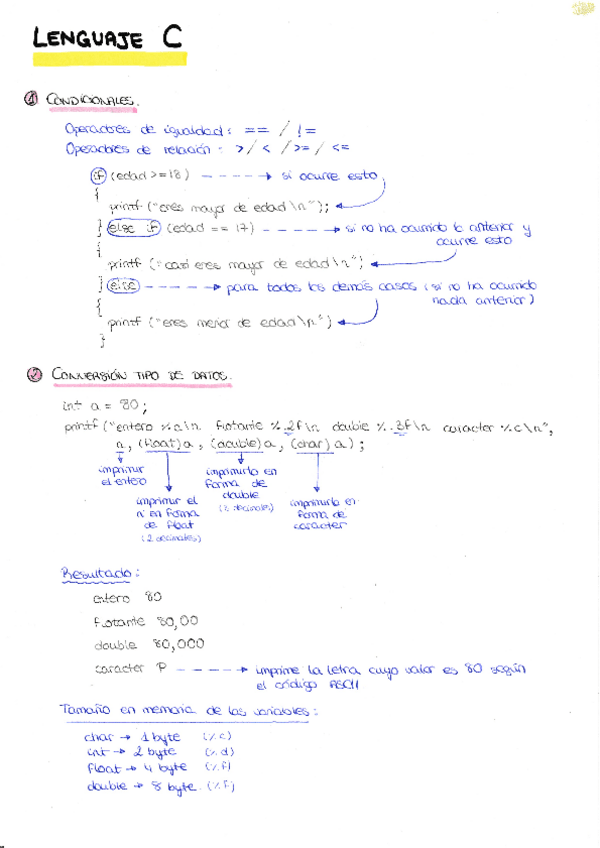 LENGUAJE C
1 CONDICIONALES.
Operadores de igualdad: == / !=
Operadores de relación: > / < / >= / <=
if (edad >=18) -----> si ocurre esto
{
printf ("eres mayor de edad\n");
} else if (edad == 17) -----> si no ha ocurrido lo anterior y
ocurre esto
{
printf ("casi eres mayor de edad\n")
} else -----> para todos los demás casos (si no ha ocurrido
nada anterior)
{
printf ("eres menor de edad\n")
}
2 CONVERSIÓN TIPO DE DATOS.
int a = 80;
printf ("entero %d\n flotante %.2f\n double %.3f\n caracter %c\n",
a, (float)a, (double)a, (char)a);
imprimir
el entero
imprimir el
nº en forma
de float
(2 decimales)
imprimirlo en
forma de
double
(3 decimales)
imprimirlo en
forma de
caracter
Resultado:
entero 80
flotante 80,00
double 80,000
caracter P -----> imprime la letra cuyo valor es 80 según
el código ASCII
Tamaño en memoria de las variables:
char → 1 byte (%c)
int → 2 byte (%d)
float → 4 byte (%f)
double → 8 byte (%f)